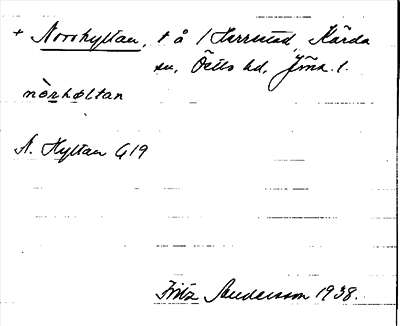 + Norrhyltan, t å / Herrestad, Kärda
sn, Östbo hd, Jön. l.
nòrhøltan
N. Hyltan G19
Fritz Andersson 1938.